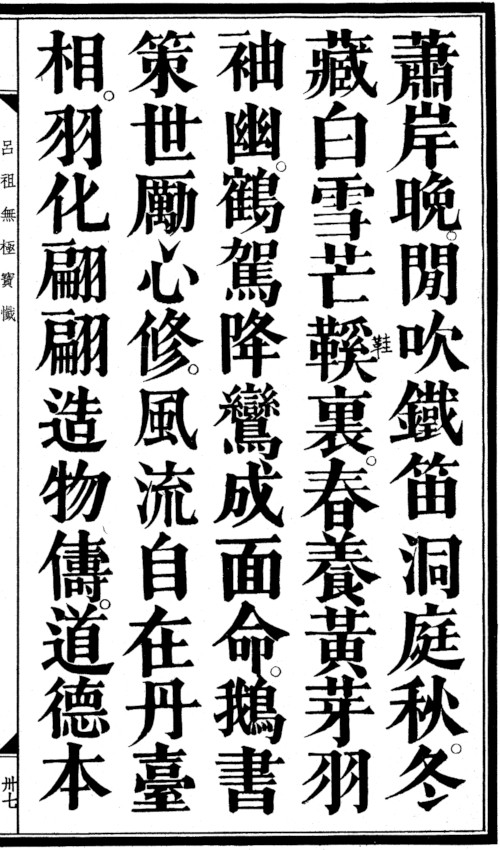 蕭岸晚。閒吹鐵笛洞庭秋。冬
藏白雪芒鞵鞋裏。春養黃芽羽
袖幽。鶴駕降鸞成面命。鵝書
策世勵心修。風流自在丹臺
相。羽化翩翩造物儔。道德本
呂祖無極寶懺
卅七